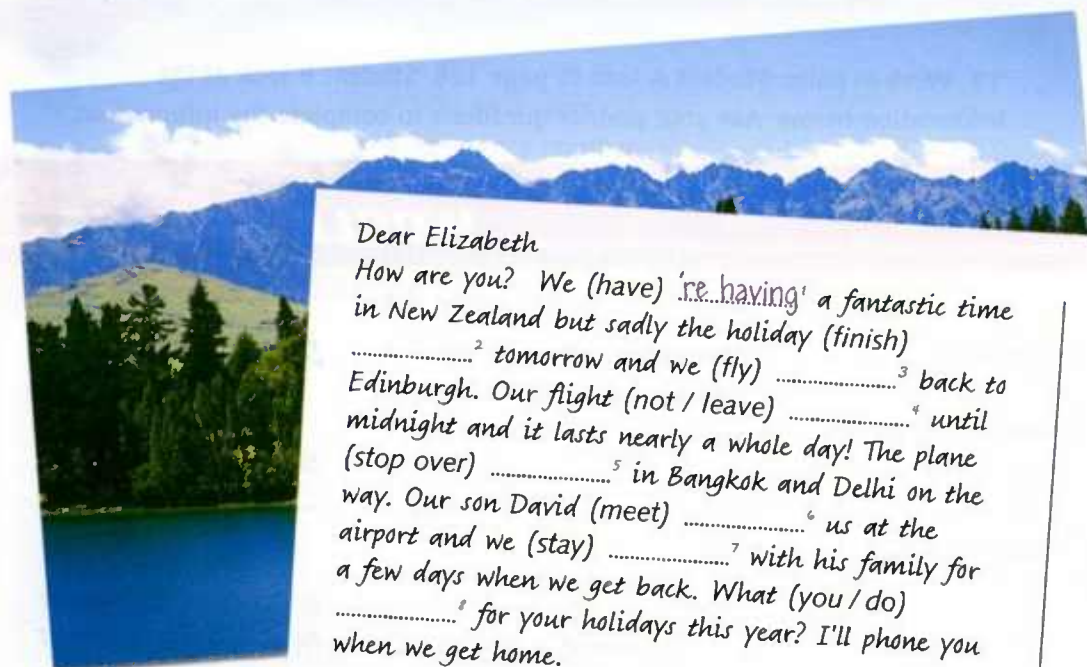 Dear Elizabeth
How are you? We (have) 're having¹ a fantastic time
in New Zealand but sadly the holiday (finish)
....................² tomorrow and we (fly) ....................³ back to
Edinburgh. Our flight (not / leave) ....................⁴ until
midnight and it lasts nearly a whole day! The plane
(stop over) ....................⁵ in Bangkok and Delhi on the
way. Our son David (meet) ....................⁶ us at the
airport and we (stay) ....................⁷ with his family for
a few days when we get back. What (you / do)
....................⁸ for your holidays this year? I'll phone you
when we get home.